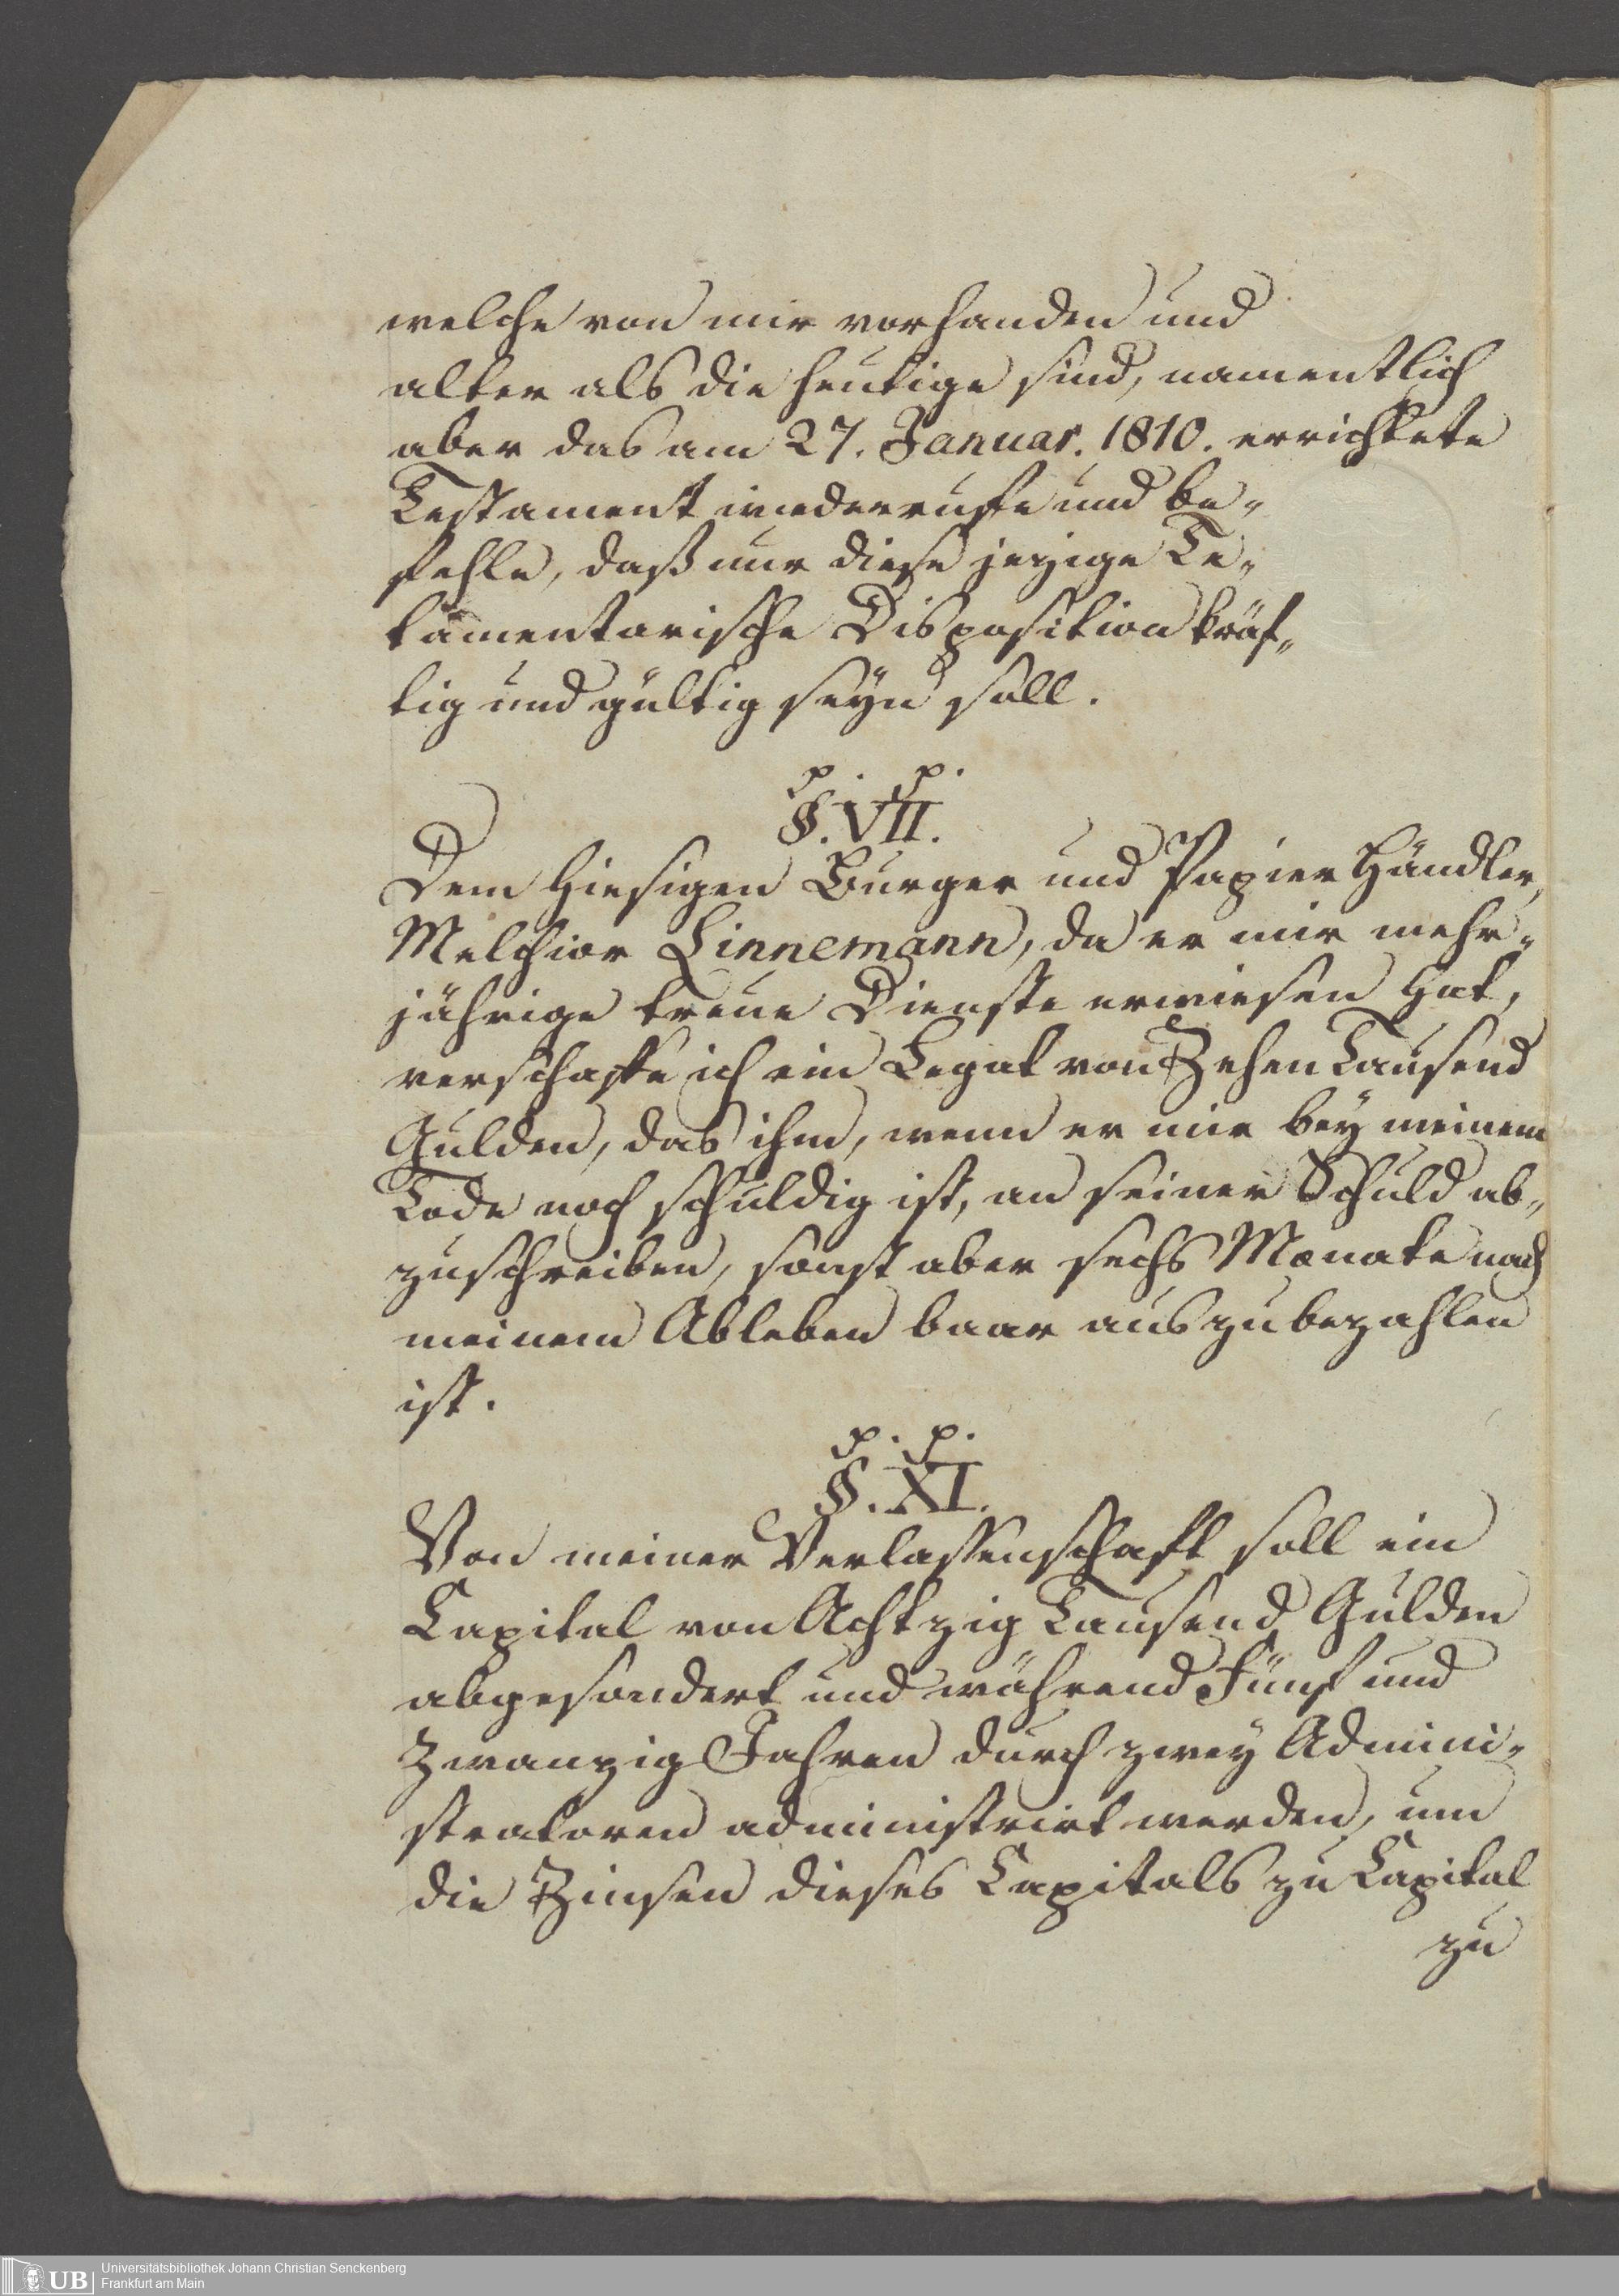 welche von mir vorhanden und
alter als die heutige sind, namentlich
aber das am 27. Januar. 1810. errichtete
Testament wiederruffe und be„
fehle, daß nur diese jezige Te„
tamentarische Disposition kräf„
tig und gültig seyn soll.
p. p.
§. VII.
Dem hiesigen Burger und Papier Händler,
Melchior Linnemann, da er mir mehr„
jährige treue Dienste erwiesen hat,
verschaffe ich ein Legat von Zehen Tausend
Gulden, das ihm, wenn er mir bey meinem
Tode noch schuldig ist, an seiner Schuld ab„
zuschreiben, sonst aber sechs Monate nach
meinem Ableben baar auszubezahlen
ist.
p. p.
§. XI.
Von meiner Verlassenschaft soll ein
Capital von Achtzig Tausend Gulden
abgesondert und während Fünf und
Zwanzig Jahren durch zwey Admini„
stratoren administrirt werden, um
die Zinsen dieses Capitals zu Capital
zu
UB Universitätsbibliothek Johann Christian Senckenberg
Frankfurt am Main